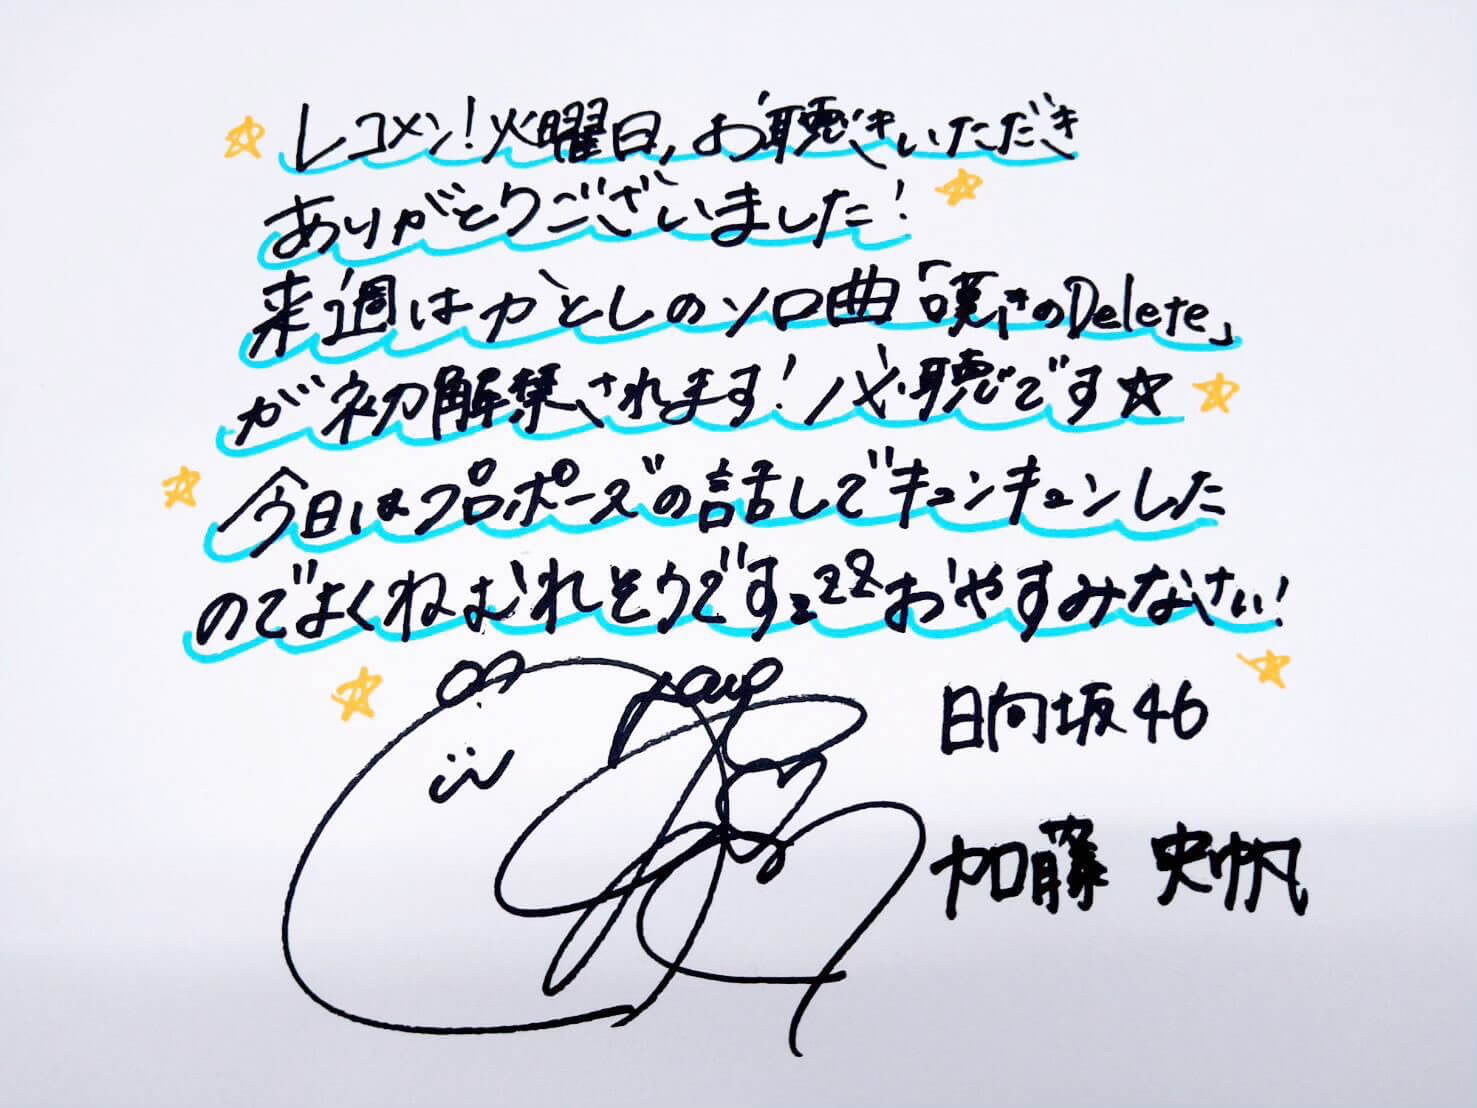 レコメン!火曜日,お聴きいただき
ありがとうございました!
来週はかとしのソロ曲「嘆きのDelete」
が初解禁されます!必聴です☆
今日はプロポーズの話しでキュンキュンした
のでよくねむれそうです
zzz
おやすみなさい!
日向坂46
加藤 史帆